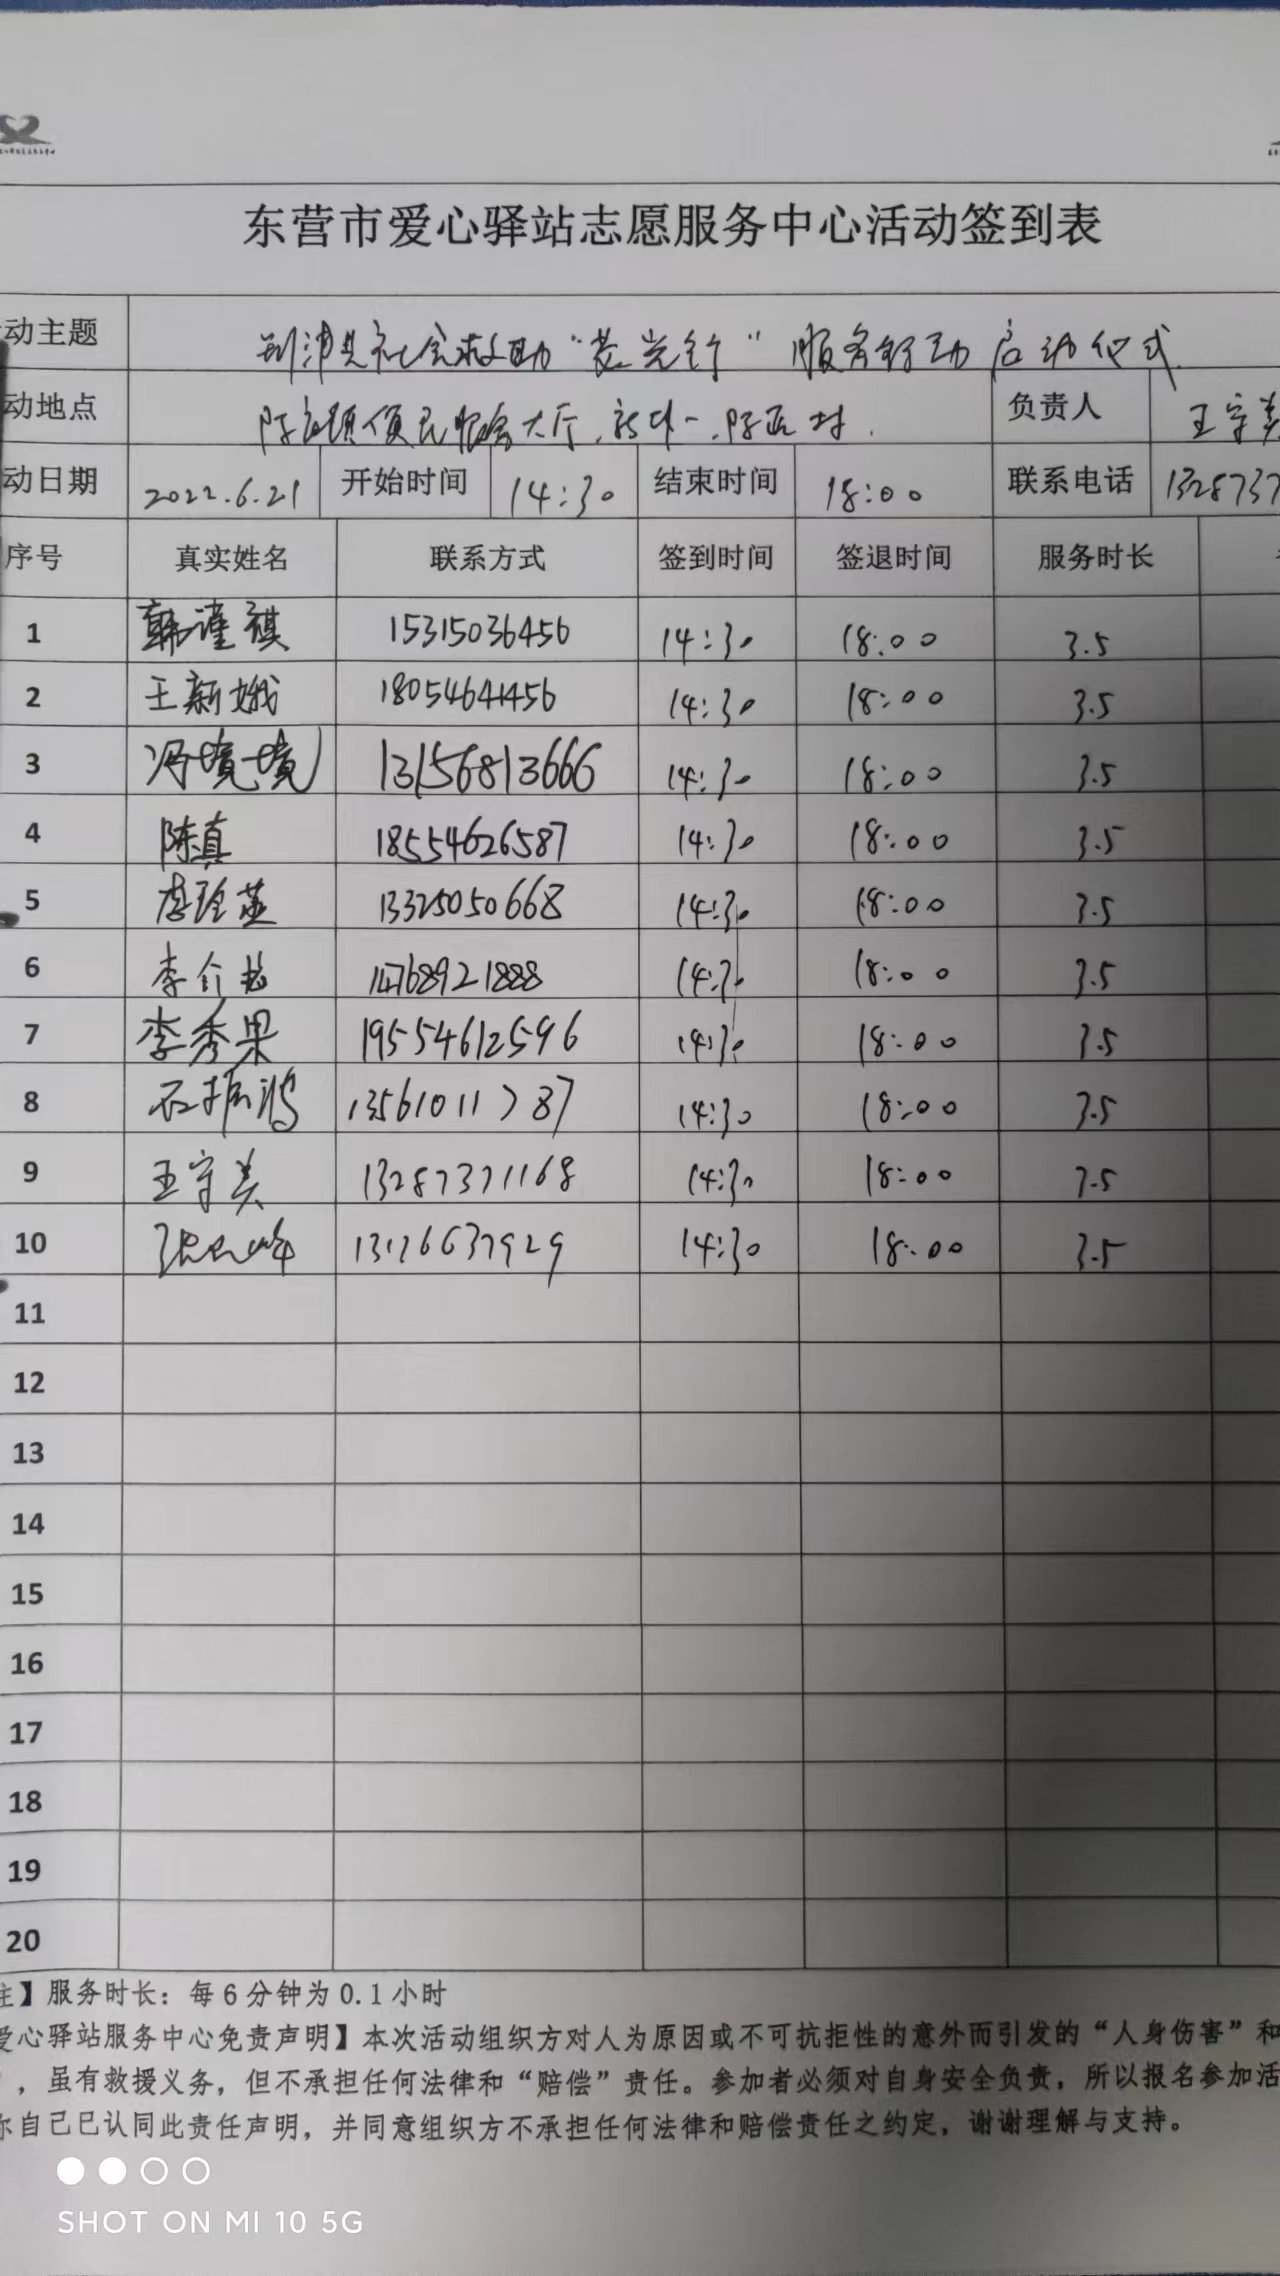 东营市爱心驿站志愿服务中心活动签到表
动主题 利津县社会救助“萤光行”服务行动启动仪式
动地点 陈庄镇便民服务大厅、 负责人 王守美
动日期 2022.6.21 开始时间 14:30 结束时间 18:00 联系电话 1328737
序号 真实姓名 联系方式 签到时间 签退时间 服务时长
1 韩谨祺 15315036456 14:30 18:00 3.5
2 王新娥 18054641456 14:30 18:00 3.5
3 冯境境 13156813666 14:30 18:00 3.5
4 陈真 18554626587 14:30 18:00 3.5
5 13325050668 14:30 18:00 3.5
6 李 14768921888 14:30 18:00 3.5
7 李秀果 19554612596 14:30 18:00 3.5
8 石振鸿 13561011787 14:30 18:00 3.5
9 王守美 13287371168 14:30 18:00 3.5
10 14:30 18:00 3.5
11
12
13
14
15
16
17
18
19
20
注】服务时长：每6分钟为0.1小时
爱心驿站服务中心免责声明】本次活动组织方对人为原因或不可抗拒性的意外而引发的“人身伤害”和
，虽有救援义务，但不承担任何法律和“赔偿”责任。参加者必须对自身安全负责，所以报名参加活
你自己已认同此责任声明，并同意组织方不承担任何法律和赔偿责任之约定，谢谢理解与支持。
SHOT ON MI 10 5G